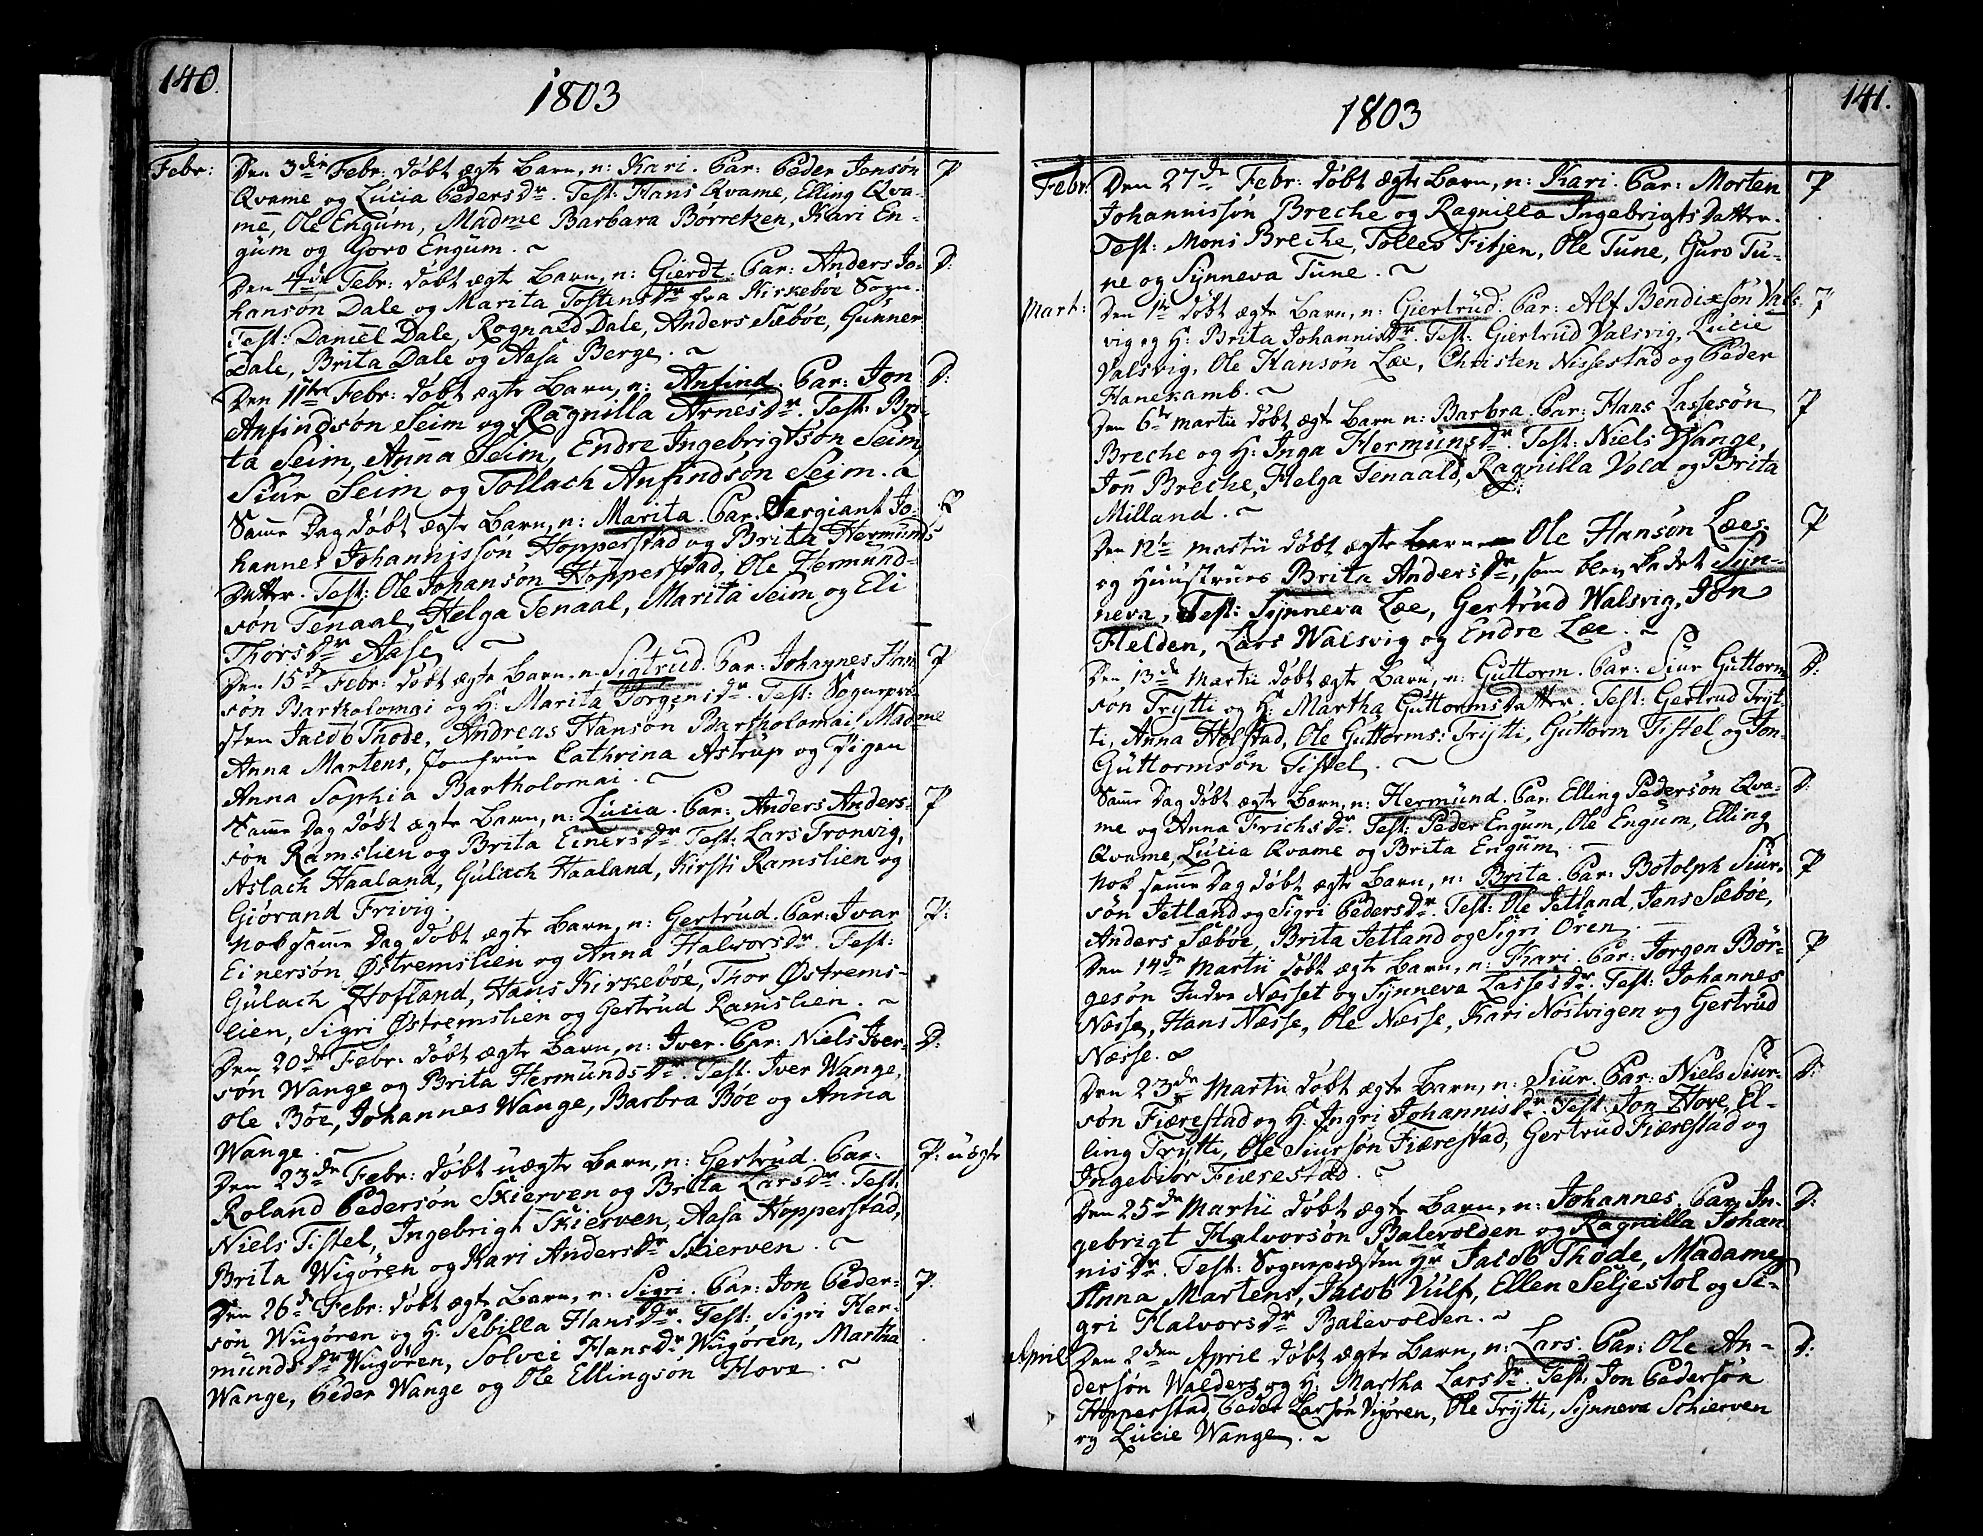 140.
1803
Febr: Den 3die Febr: døbt ægte Barn, n: Kari. Par: Peder Jonsøn P
Qvame og Lucia PedersDr. Test: Hans Qvame, Elling Qva-
me, Ole Engum, Madme Barbara Børretzen, Kari En-
gum og Goro Engum. ~
Den 4de Febr: døbt ægte Barn, n: Gierdt. Par: Anders Jo- D:
hansøn Dale og Marita TostensDr fra Kirkebøe Sogn.
Test: Daniel Dale, Rognald Dale, Anders Sæbøe, Gunner
Dale, Brita Dale og Aasa Berge. ~
Den 11te Febr: døbt ægte Barn, n: Anfind. Par: Jon D:
Anfindsøn Seim og Ragnilla ArnesDr. Test: Bri-
ta Seim, Anna Seim, Endre Ingebrigtsøn Seim,
Siur Seim og Tollach Anfindsøn Seim.
Samme Dag døbt ægte Barn, n: Marita. Par: Sergiant Jo- P
hannes Johannissøn Hopperstad og Brita Hermunds
Datter. Test: Ole Johansøn Hopperstad, Ole Hermund-
søn Tenaal, Helga Tenaal, Marita Seim og Eli
ThorsDr Aase. ~
Den 15de Febr: døbt ægte Barn, n: Sigtrud. Par: Johannes Han P
søn Bartholomai og H: Marita TorgensDr. Test: Sognepræ-
sten Jacob Thode, Andreas Hansøn Bartholomai, Madme
Anna Martens, Jomfrue Cathrina Astrup og Pigen
Anna Sophia Bartholomai. ~
Samme Dag døbt ægte Barn, n: Lucia. Par: Anders Anders- P
søn Ramslien og Brita EinersDr. Test: Lars Tronvig,
Aslach Haaland, Gulach Haaland, Kirsti Ramslien og
Giørand Frivig.
Nok samme Dag døbt ægte Barn, n: Gertrud. Par: Ivar P:
Einersøn Østremslien og Anna HalvorsDr. Test:
Gulach Hofland, Hans Kirkebøe, Thor Østrems-
lien, Sigri Østremslien og Gertrud Ramslien. ~
Den 20de Febr: døbt ægte Barn, n: Iver. Par: Niels Iver- D:
søn Wange og Brita HermundsDr. Test: Iver Wange,
Ole Bøe, Johannes Wange, Barbra Bøe og Anna
Wange. ~
Den 23de Febr: døbt uægte Barn, n: Gertrud. Par: P: uægte
Roland Pedersøn Skierven og Brita LarsDr. Test:
Niels Tistel, Ingebrigt Skierven, Aasa Hopperstad,
Brita Wigøren og Kari AndersDr Skierven. ~
Den 26de Febr: døbt ægte Barn, n: Sigri. Par: Jon Peder- P.
søn Wiigøren og H: Sebilla HansDr. Test: Sigri Her-
mundsDr Wiigøren, Solvei HansDr Wiigøren, Martha
Wange, Peder Wange og Ole Ellingsøn Hove. ~
141.
1803
Febr: Den 27de Febr: døbt ægte Barn, n: Kari. Par: Morten P
Johannissøn Breche og Ragnilla IngebrigtsDatter.
Test: Mons Breche, Tolles Fitjen, Ole Tune, Guro Tu-
ne og Synneva Tune. ~
Mart: Den 1te døbt ægte Barn, n: Giertrud. Par: Alf Bendixsøn Vals- P
vig og H: Brita JohannisDr. Test: Giertrud Valsvig, Lucie
Valsvig, Ole Hansøn Lee, Christen Nissestad og Peder
Hanekamb. ~
Den 6te Martii døbt ægte Barn n: Barbra. Par: Hans Lassesøn P
Breche og H: Inga HermunsDr. Test: Niels Wange,
Jon Breche, Helga Tenaald, Ragnilla Vold og Brita
Milland. ~
Den 12te Martii døbt ægte Barn Ole Hansøn Læes P
og Huustrues Brita AndersDr, som blev kaldet Syn-
neva, Test: Synneva Læe, Gertrud Walsvig, Jon
Helden, Lars Walsvig og Endre Læe. ~
Den 13de Martii døbt ægte Barn, n: Guttorm. Par: Siur Guttorm D:
søn Trytti og H: Martha GuttormsDatter. Test: Gertrud Tryt-
ti, Anna Holstad, Ole Guttorms: Trytti, Guttorm Tistel og Jon
Guttormsøn Tistel. ~
Samme Dag døbt ægte Barn, n: Hermund. Par: Elling Pedersøn Qva- D:
me og Anna FrichsDr. Test: Peder Engum, Ole Engum, Elling
Qvame, Lucia Qvame og Brita Engum. ~
Nok samme Dag døbt ægte Barn, n: Brita. Par: Botolph Siur- P
søn Jetland og Sigri PedersDr. Test: Ole Jetland, Jens Sæbøe,
Anders Sæbøe, Brita Jetland og Sigri Ören.
Den 14de Martii døbt ægte Barn, n: Kari. Par: Jørgen Bör- P
gesøn Indre Næsset og Synneva LassesDr. Test: Johannes
Næsse, Hans Næsse, Ole Næsse, Kari Nostvigen og Gertrud
Næsse.
Den 23de Martii døbt ægte Barn, n: Siur. Par: Niels Siur- D:
søn Fiærestad og H: Ingri JohannisDr. Test: Jon Hove, El-
ling Trytti, Ole Siursøn Fiærestad, Gertrud Fiærestad og
Ingebiør Fiærestad. ~
Den 25de Martii døbt ægte Barn, n: Johannes. Par: In- D:
gebrigt Halvorsøn Balevolden og Ragnilla Johan
nisDr. Test: Sognepræsten Hr Jacob Thode, Madame
Anna Martens, Jacob Vulf, Ellen Seljestol og Si-
gri HalvorsDr Balevolden. ~
April Den 2den April døbt ægte Barn, n: Lars. Par: Ole An- D:
dersøn Walders og H: Martha LarsDr. Test: Jon Pedersøn
Hopperstad, Peder Larsøn Vigøren, Ole Trytti, Synneva Schierven
og Lucie Wange. ~